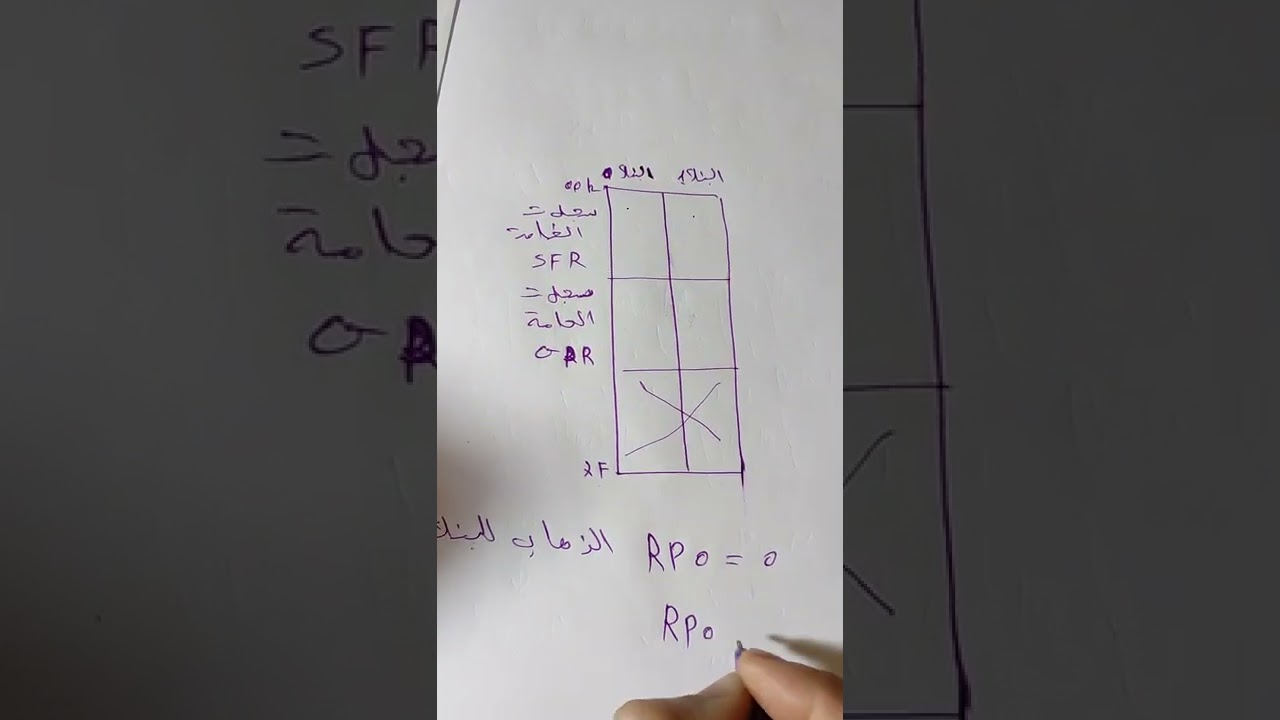 البنك0 البنك1
00h
سجلات
العامة
SFR
سجلات
العامة
GPR
2F
الذهاب للبنك RP0 = 0
RP0